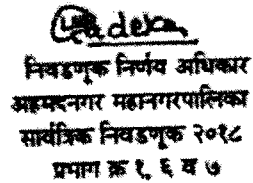 निवडणूक निर्णय अधिकार
अहमदनगर महानगरपालिका
सार्वत्रिक निवडणूक २०१८
प्रभाग क्र १, ६ व ७